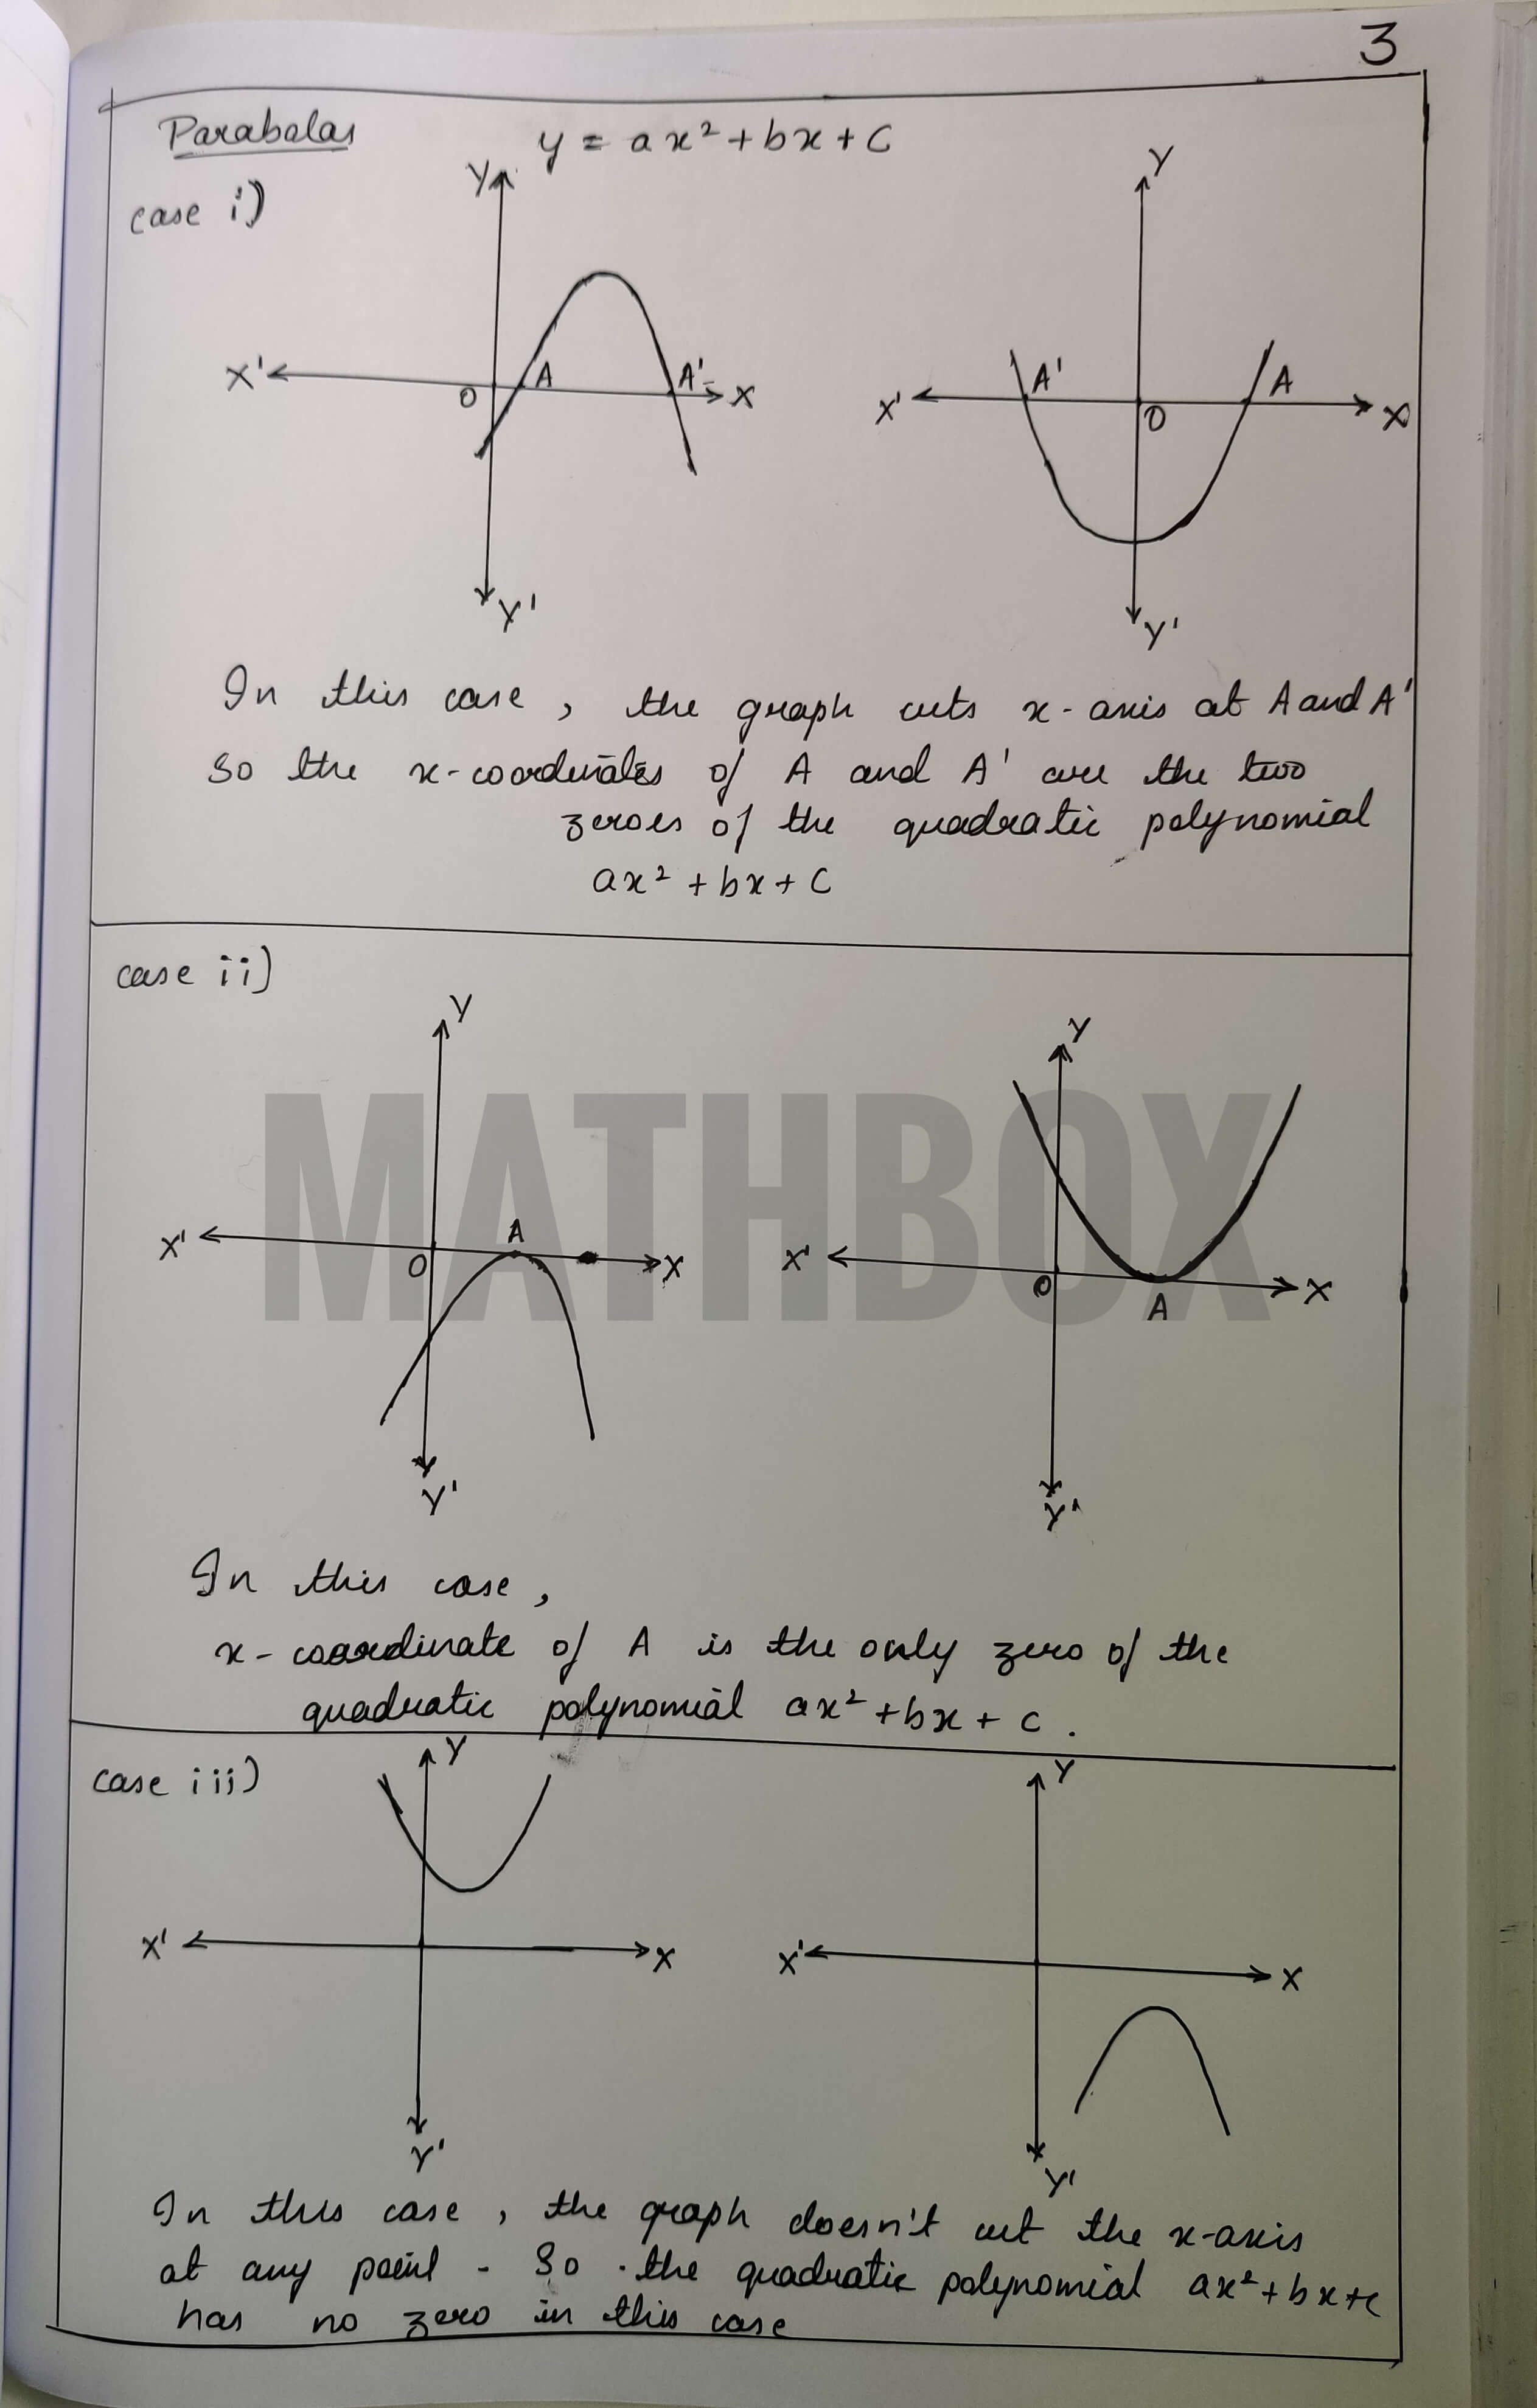 3
Parabolas
y = ax² + bx + c
case i)
Y
Y
X'
O
A
A'
X
X'
A'
O
A
X
Y'
Y'
In this case , the graph cuts x-axis at A and A'
so the x-coordinates of A and A' are the two
zeroes of the quadratic polynomial
ax² + bx + c
case ii)
Y
Y
MATHBOX
X'
O
A
X
X'
O
A
X
Y'
Y'
In this case ,
x-coordinate of A is the only zero of the
quadratic polynomial ax² + bx + c .
case iii)
Y
Y
X'
X
X'
X
Y'
Y'
In this case , the graph doesn't cut the x-axis
at any point - So . the quadratic polynomial ax² + bx + c
has no zero in this case